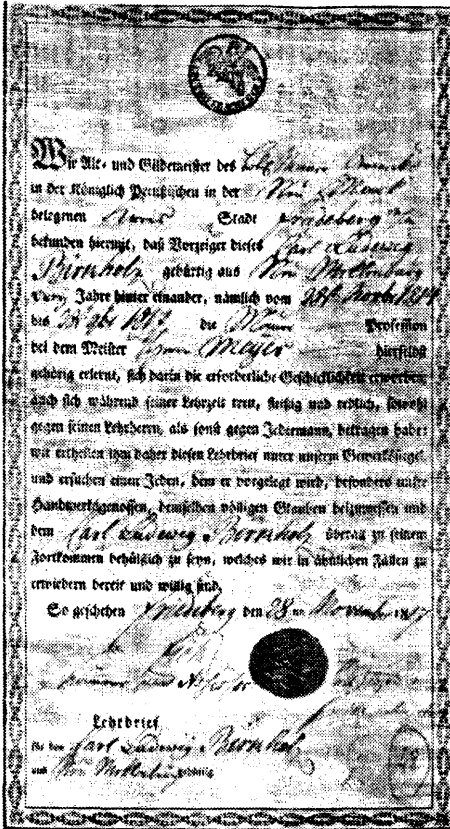 Wir Alt- und Gildemeister des
in der Königlich Preußischen in der Neu
belegenen Stadt Friedeberg
bekunden hiermit, daß Vorzeiger dieses Carl Ludewig
Birnholz gebürtig aus Neu Mecklenburg
Jahre hinter einander, nämlich vom 28ten Novbr 1814
bis 28 9br 1817 die Maurer Profession
bei dem Meister Herrn Meyer hierselbst
gehörig erlernt, sich darin die erforderliche Geschicklichkeit erworben,
auch sich während seiner Lehrzeit treu, fleißig und redlich, sowohl
gegen seinen Lehrherrn, als sonst gegen Jedermann, betragen habe;
wir ertheilen ihm daher diesen Lehrbrief unter unserm Gewerkssiegel
und ersuchen einen Jeden, dem er vorgelegt wird, besonders unsre
Handwerksgenossen, demselben völligen Glauben beizumessen und
dem Carl Ludewig Birnholz überall zu seinem
Fortkommen behülflich zu seyn, welches wir in ähnlichen Fällen zu
erwiedern bereit und willig sind.
So geschehen Friedeberg den 28 ten November 1817
Lehrbrief
für den Carl Ludewig Birnholz
aus Neu Mecklenburg gebürtig